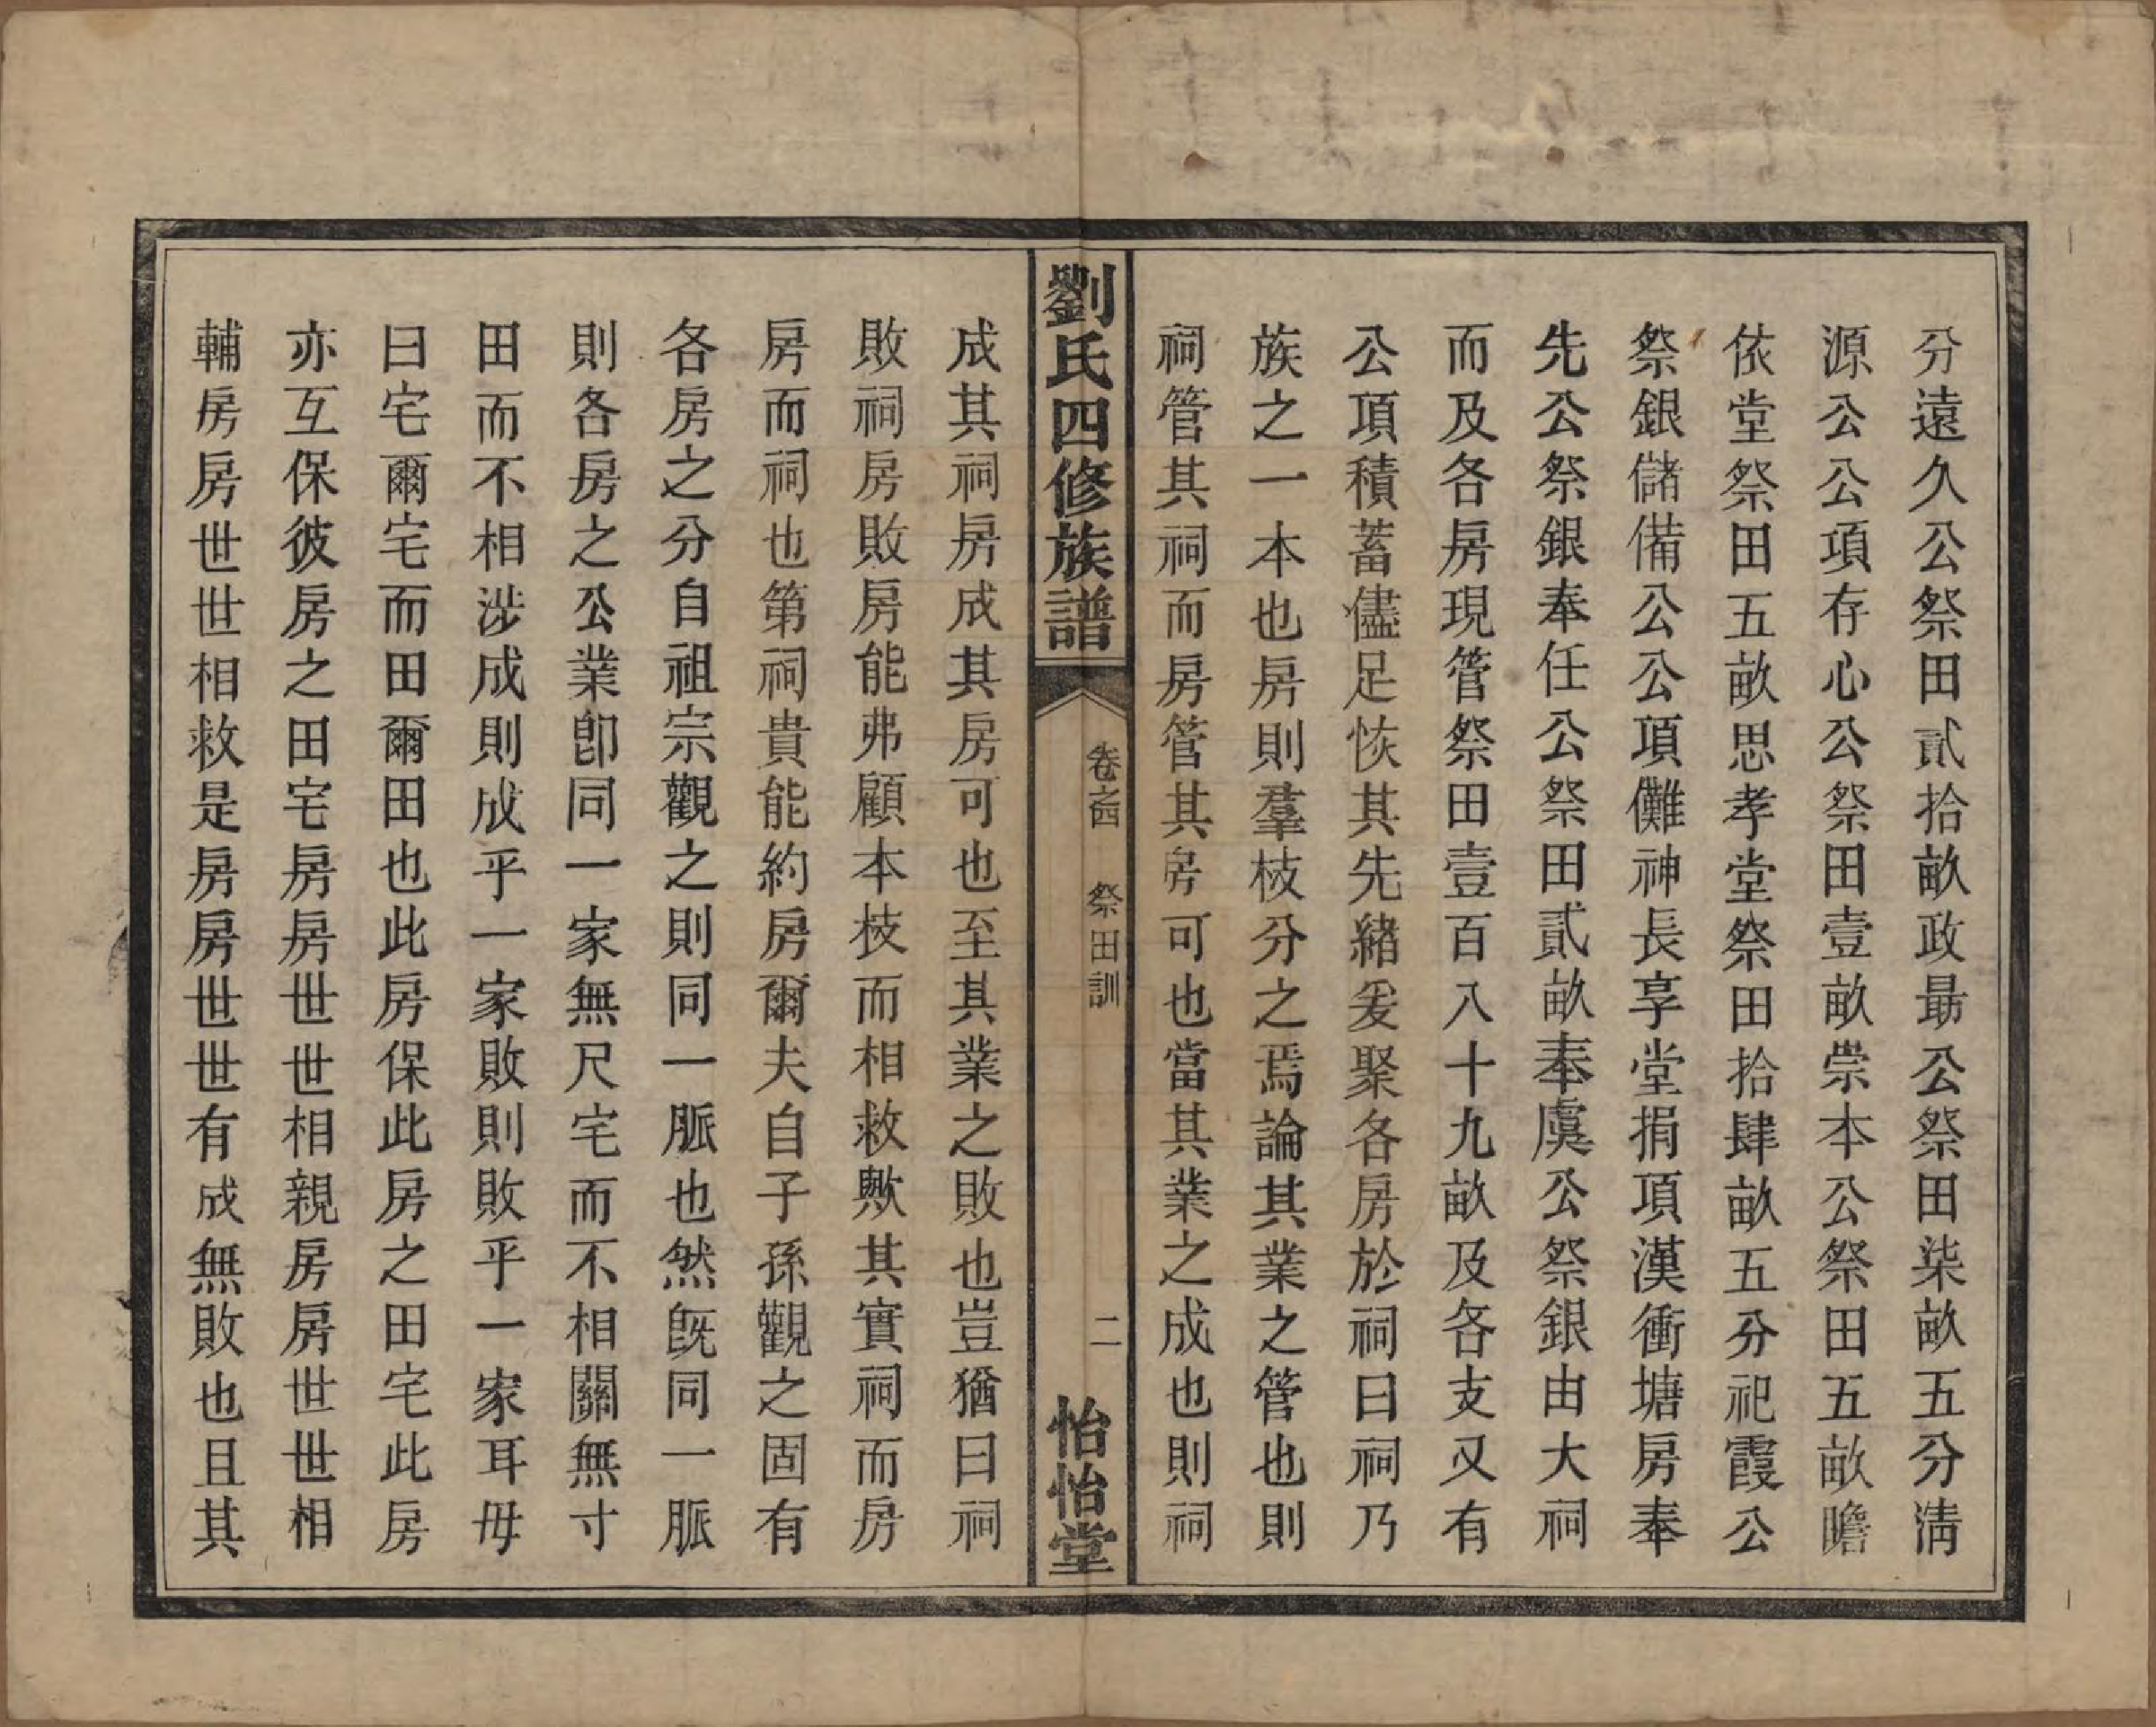 分遠久公祭田貳拾畝政勗公祭田柒畝五分淸
源公公項存心公祭田壹畝崇本公祭田五畝瞻
依堂祭田五畝思孝堂祭田拾肆畝五分祀霞公
祭銀儲備公公項儺神長享堂捐項漢衝塘房奉
先公祭銀奉任公祭田貳畝奉虞公祭銀由大祠
而及各房現管祭田壹百八十九畝及各支又有
公項積蓄儘足恢其先緒爰聚各房於祠曰祠乃
族之一本也房則羣枝分之焉論其業之管也則
祠管其祠而房管其房可也當其業之成也則祠
劉氏四修族譜
卷之四 祭田訓
二
怡怡堂
成其祠房成其房可也至其業之敗也豈猶曰祠
敗祠房敗房能弗顧本枝而相救歟其實祠而房
房而祠也第祠貴能約房爾夫自子孫觀之固有
各房之分自祖宗觀之則同一脈也然旣同一脈
則各房之公業卽同一家無尺宅而不相關無寸
田而不相涉成則成乎一家敗則敗乎一家耳毋
曰宅爾宅而田爾田也此房保此房之田宅此房
亦互保彼房之田宅房房世世相親房房世世相
輔房房世世相救是房房世世有成無敗也且其